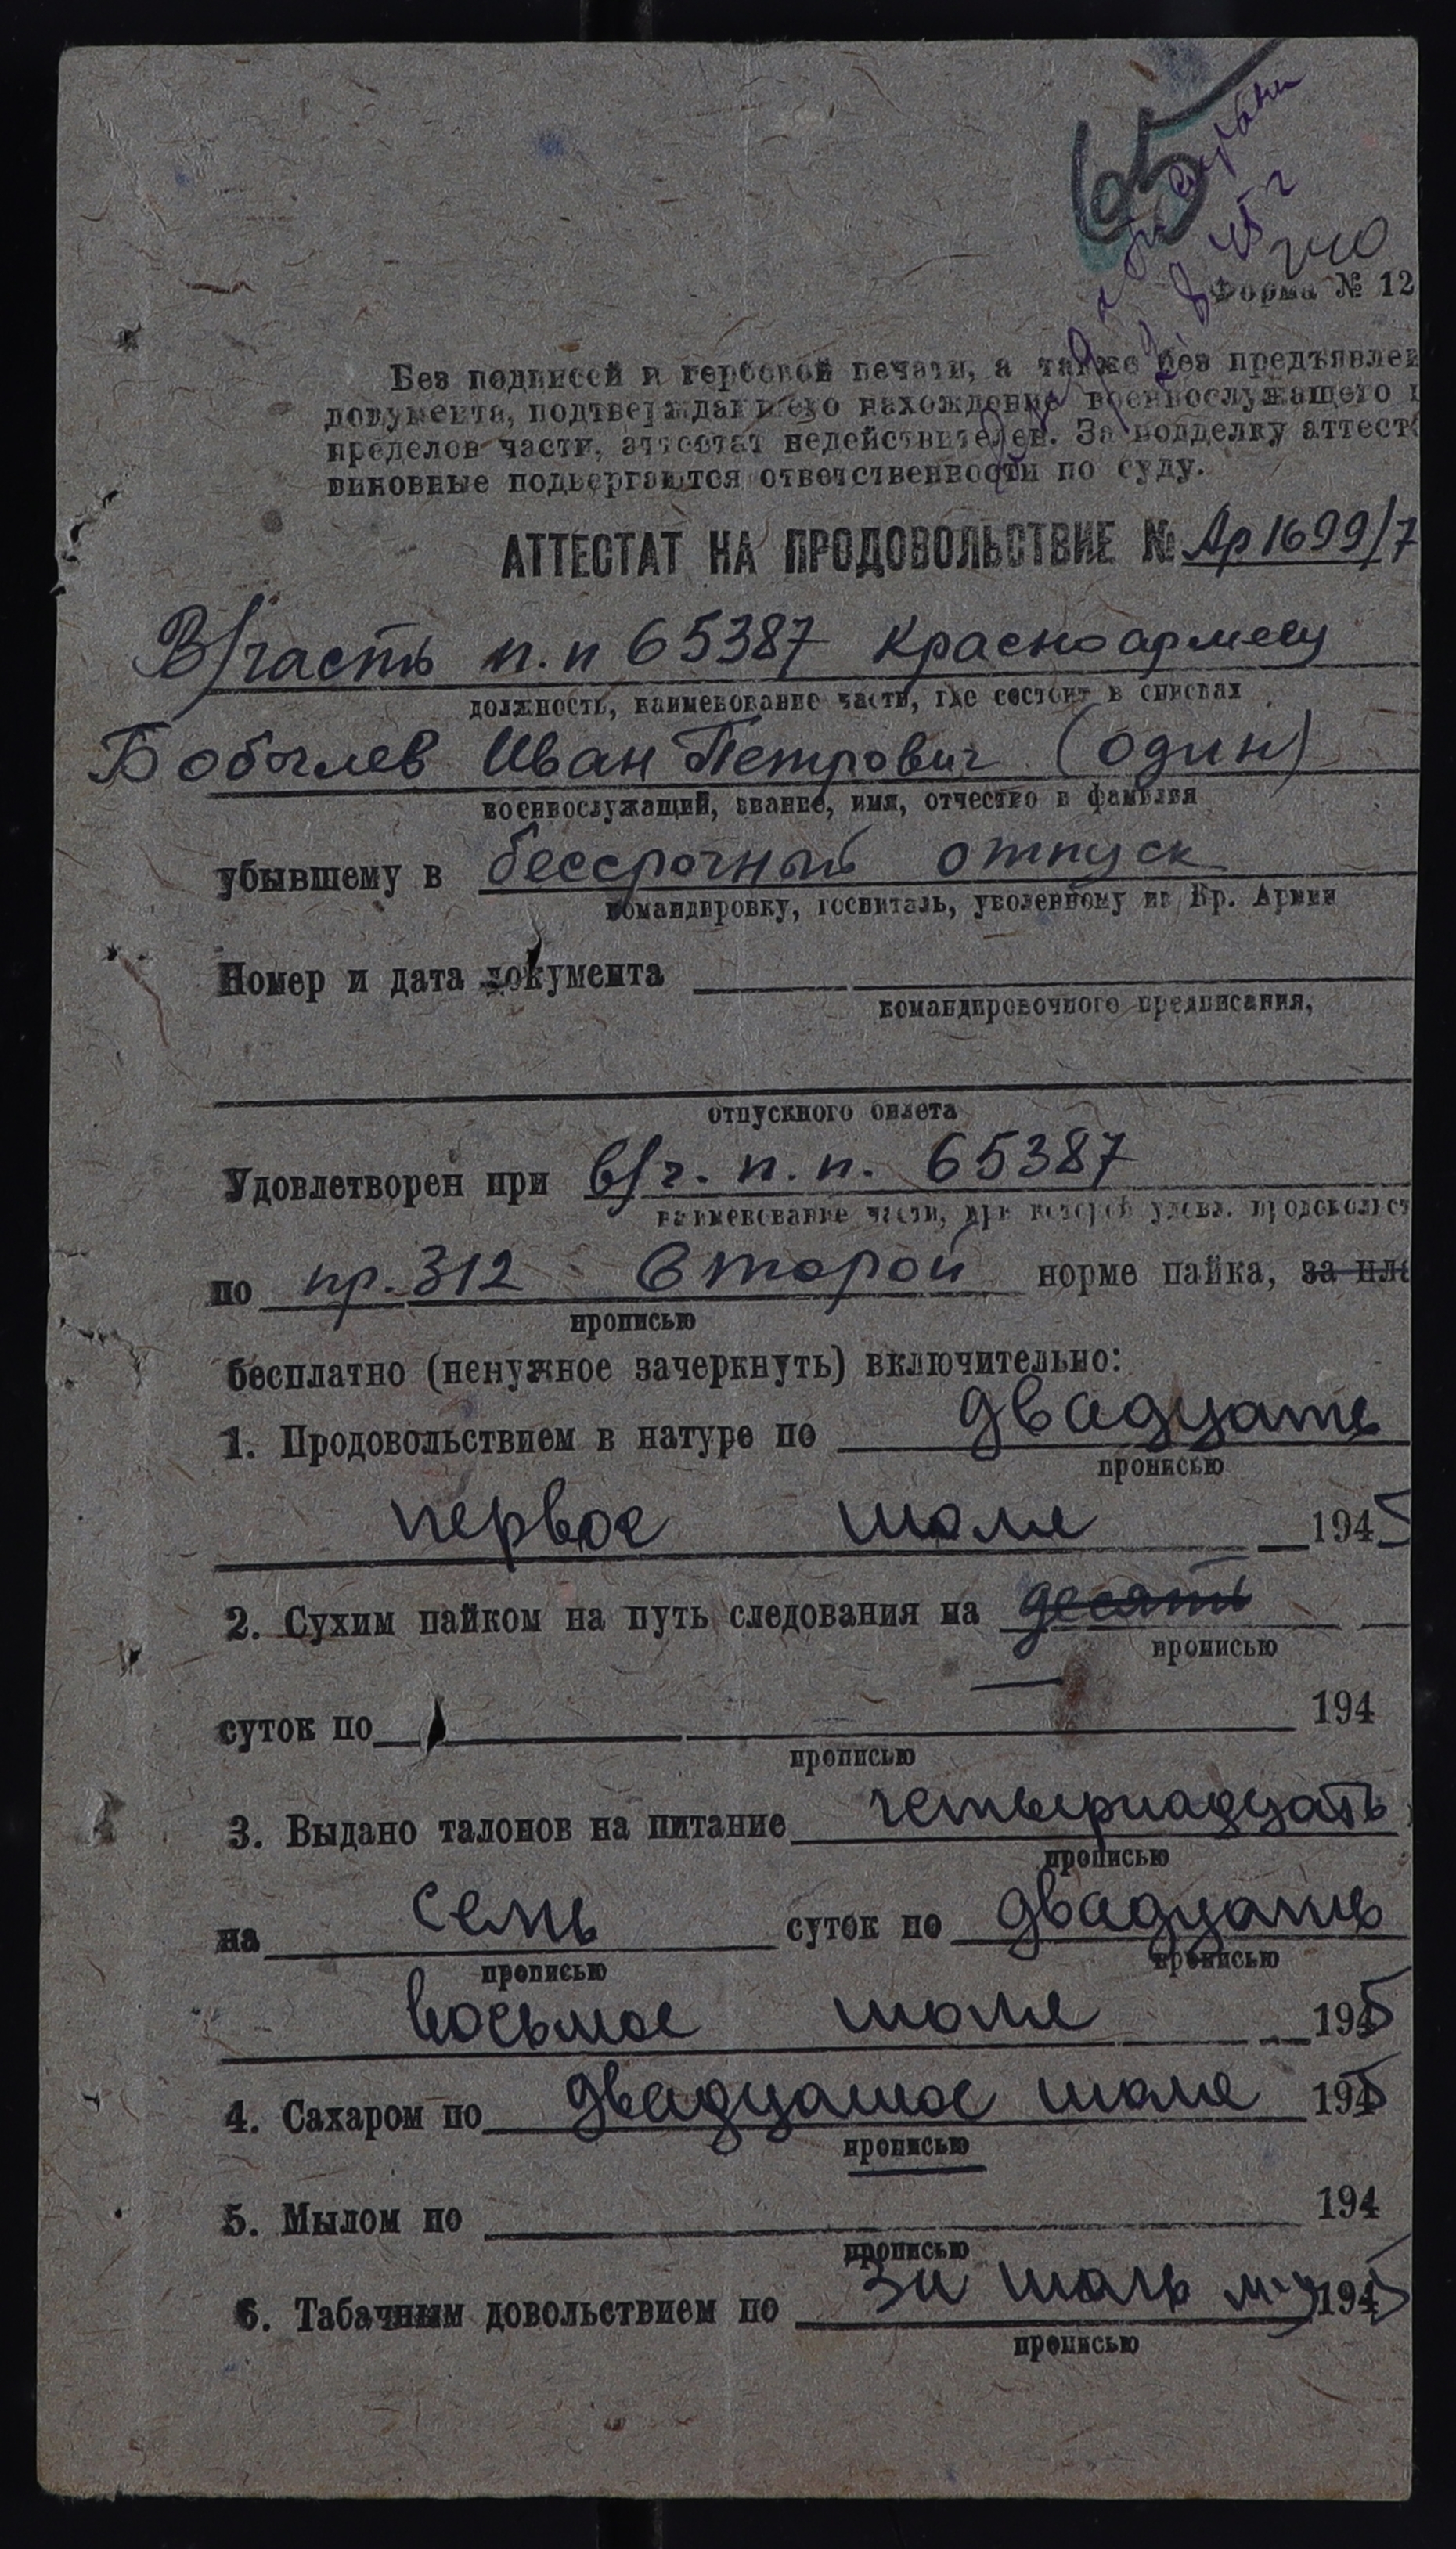 65
45 г
240
Форма № 12
Без подписей и гербовой печати, а также без предъявлен
документа, подтверждающего нахождение военнослужащего в
пределов части, аттестат недействителен. За подделку аттеста
виновные подвергаются ответственности по суду.
АТТЕСТАТ НА ПРОДОВОЛЬСТВИЕ № Ар 1699/7
В/часть п.п 65387 Красноармейцу
должность, наименование части, где состоит в списках
Бобылев Иван Петрович (один)
военнослужащий, звание, имя, отчество и фамилия
убывшему в бессрочный отпуск
командировку, госпиталь, уволенному из Кр. Армии
Номер и дата документа
командировочного предписания,
отпускного билета
Удовлетворен при в/ч. п.п. 65387
наименование части, при которой удовл. продовольст
по пр. 312 второй норме пайка, за пла
прописью
бесплатно (ненужное зачеркнуть) включительно:
1. Продовольствием в натуре по двадцать
прописью
первое июля 1945
2. Сухим пайком на путь следования на десять
прописью
суток по — 194
прописью
3. Выдано талонов на питание четырнадцать
прописью
на семь суток по двадцать
прописью прописью
восьмое июля 1945
4. Сахаром по двадцатое июля 1945
прописью
5. Мылом по 194
прописью
6. Табачным довольствием по за июль м-ц 1945
прописью